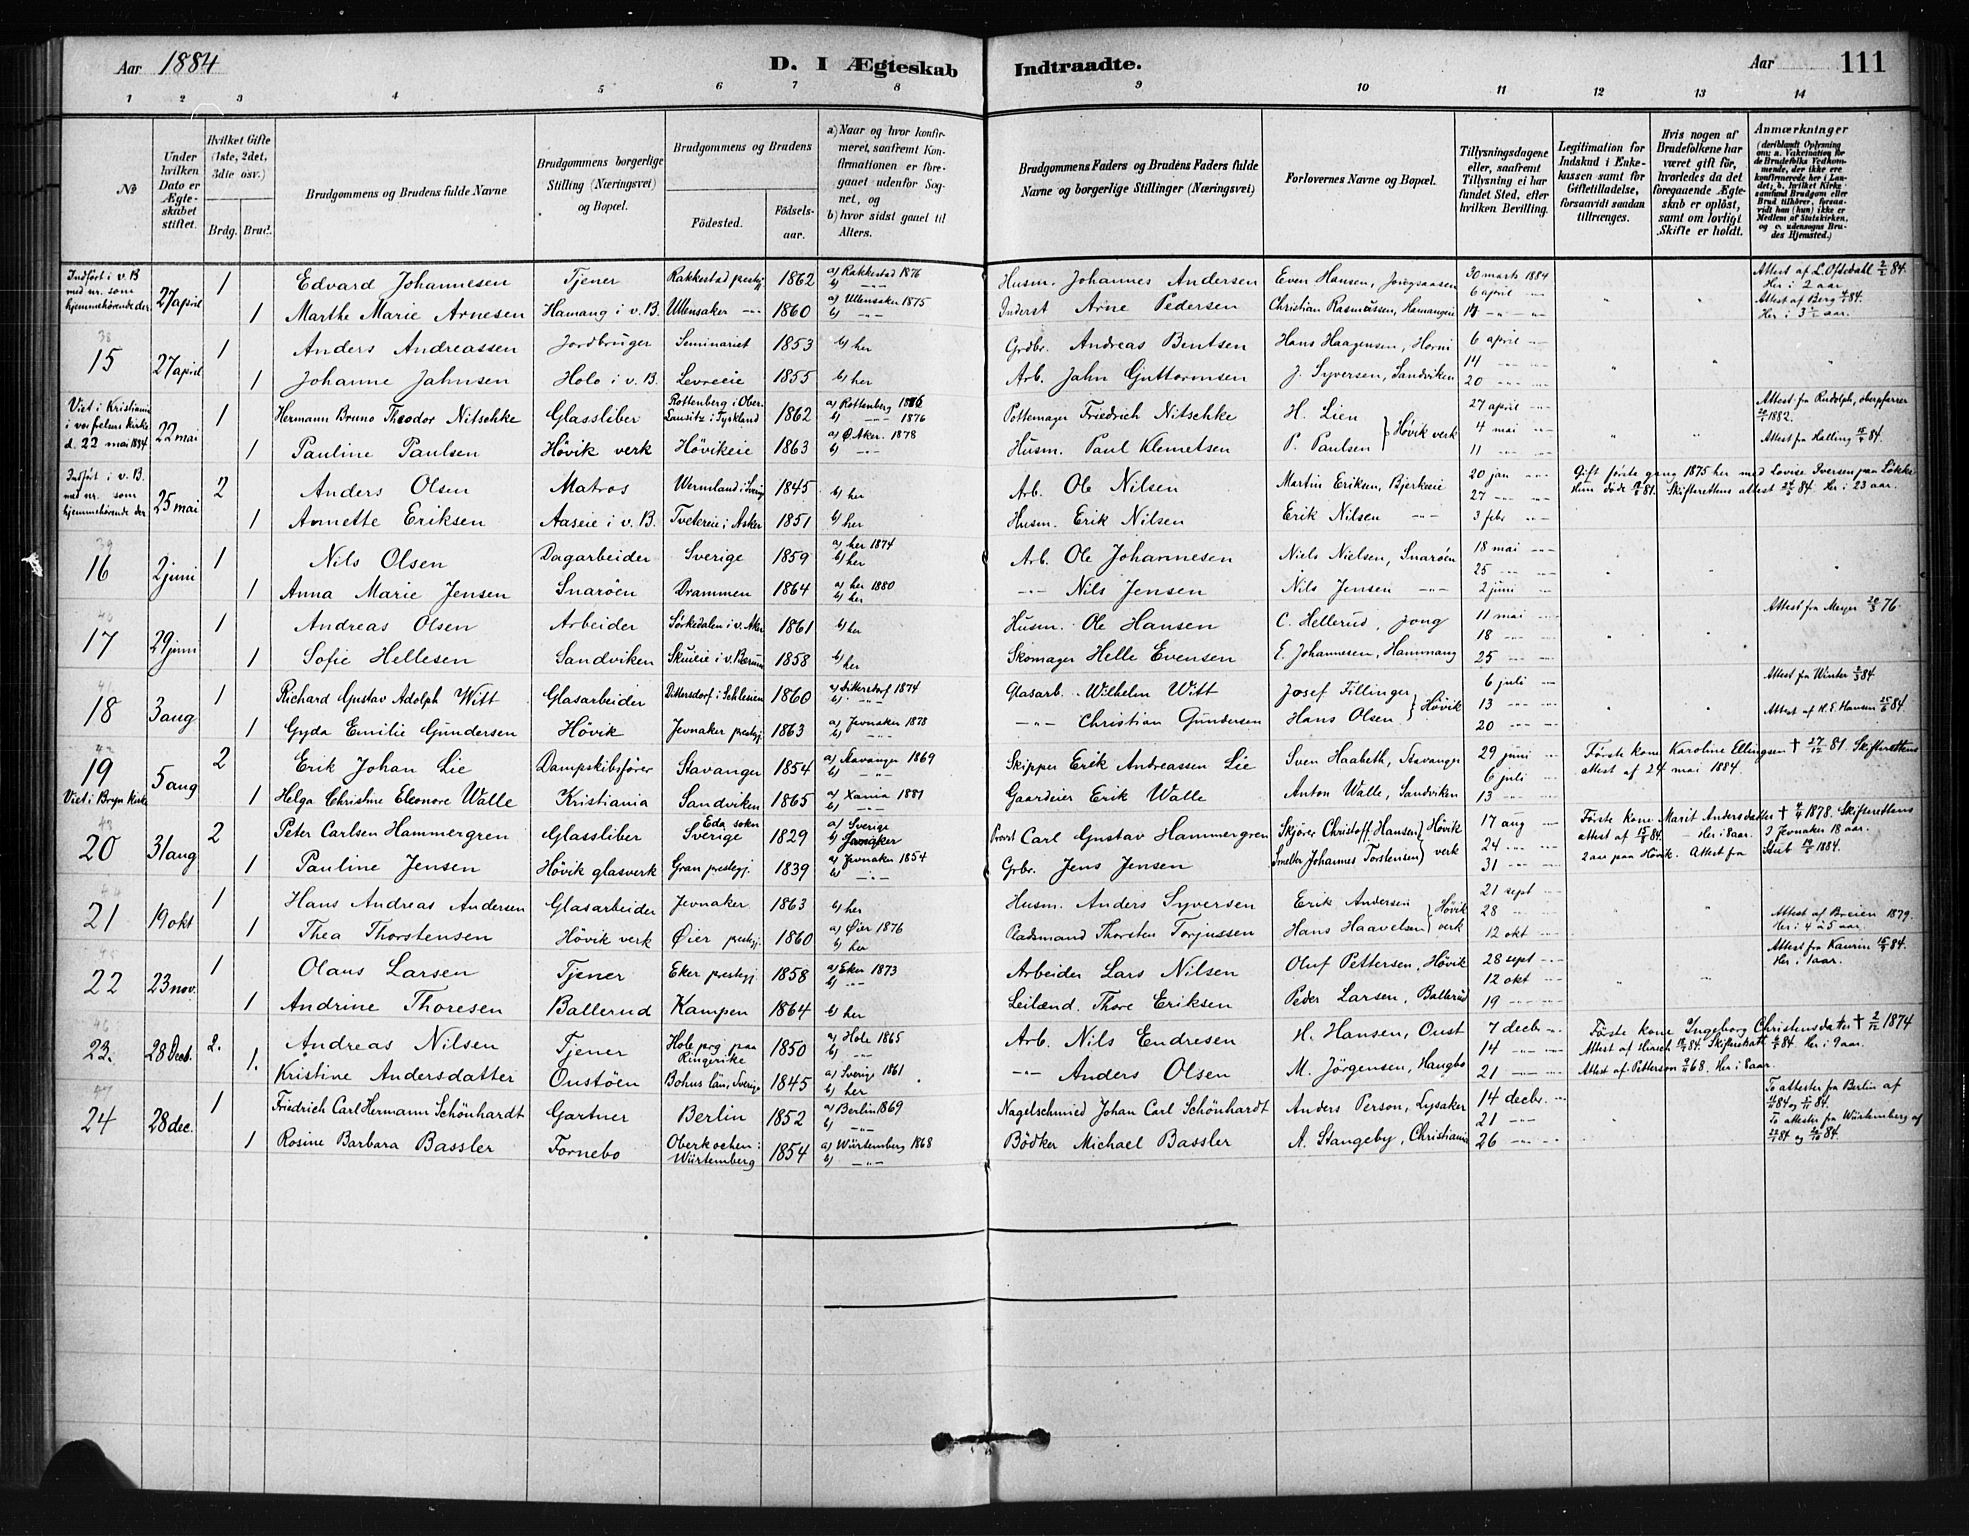 Aar 1884
D. I Ægteskab Indtraadte.
Aar
111
1 2 3 4 5 6 7 8 9 10 11 12 13 14
No
Under hvilken Dato er Ægteskabet stiftet.
Hvilket Gifte (1ste, 2det, 3die osv.)
Brdg. Brud.
Brudgommens og Brudens fulde Navne
Brudgommens borgerlige Stilling (Næringsvei) og Bopæl.
Brudgommens og Brudens
Födested.
Födsels-aar.
a) Naar og hvor konfirmeret, saafremt Konfirmationen er foregaaet udenfor Sognet, og
b) hvor sidst gaaet til Alters.
Brudgommens Faders og Brudens Faders fulde Navne og borgerlige Stillinger (Næringsvei)
Forlovernes Navne og Bopæl.
Tillysningsdagene eller, saafremt Tillysning ei har fundet Sted, efter hvilken Bevilling.
Legitimation for Indskud i Enkekassen samt for Giftetilladelse, forsaavidt saadan tiltrænges.
Hvis nogen af Brudefolkene har været gift för, hvorledes da det foregaaende Ægteskab er oplöst, samt om lovligt Skifte er holdt.
Anmærkninger (deriblandt Oplysning om: a. Vakcination for de Brudefolks Vedkommende, der ikke ere konfirmerede her i Landet; b. hvilket Kirkesamfund Brudgom eller Brud tilhörer, forsaavidt han (hun) ikke er Medlem af Statskirken, og c. udensogns Brudes Hjemsted.)
Indført i v. B med nr. som hjemmehörende der 27 april 1 Edvard Johannesen Tjener Rakkestad prestgj 1862 a) Rakkestad 1876 b) -"- Husm. Johannes Andersen Even Hansen, Jongsaasen 30 marts 1884 Attest af L. Ofsdahl 2/2 84. Her i 2 aar
1 Marthe Marie Arnesen Hamang i v. B. Ullensaker -"- 1860 a) Ullensaker 1875 b) -"- Inderst Arne Pedersen Christian Rasmussen, Hamangeie 6 april 14 -"- Attest af Berg 4/4 84. Her i 3 1/2 aar.
38
15 27 april 1 Anders Andreassen Jordbruger Seminariet 1853 b) her Grdbr. Andreas Bentsen Hans Haagensen, Horni 6 april
1 Johanne Jahnsen Holo i v. B. Levreeie 1855 b) her Arb. Jahn Guttormsen J. Syversen, Sandviken 14 20
Viet i Kristiania i vor frelsers kirke d. 22 mai 1884 22 mai 1 Hermann Bruno Theodor Nitschke Glassliber Rottenberg i Ober-Lausitz i Tyskland 1862 a) Rottenberg 1876 b) -"- 1876 Pottemager Friedrich Nitschke H. Lien 27 april Attest fra Rudolph, oberpfarrer 1882.
1 Pauline Paulsen Høvik verk Høvikeie 1863 a) Ø. Aker. 1878 b) -"- Husm. Paul Klemetsen P. Paulsen } Høvik verk 4 mai 11 Attest fra Halling 84.
Indført i v. B. med nr. som hjemmehörende der 25 mai 2 Anders Olsen Matros Wermland i Sverige 1845 b) her Arb. Ole Nilsen Martin Eriksen, Bjerkeeie 20 jan Gift første gang 1875 her med Lovise Iversen paa Løkke
1 Annette Eriksen Aaseie i v. B. Tvetereie i Asker 1851 b) her Husm. Erik Nilsen Erik Nilsen -"- 27 3 febr Hun døde 81. Skifterettens attest 84. Her i 23 aar.
39
16 2 juni 1 Nils Olsen Dagarbeider Sverige 1859 a) her 1874 b) her Arb. Ole Johannesen Niels Nielsen, Snarøen 18 mai
1 Anna Marie Jensen Snarøen Drammen 1864 a) her 1880 b) her -"- Nils Jensen Nils Jensen -"- 25 2 juni
40
17 29 juni 1 Andreas Olsen Arbeider Sörkedalen i v. Aker 1861 b) her Husm. Ole Hansen C. Hellerud, Jong 11 mai Attest fra Meyer 76.
1 Sofie Hellesen Sandviken Skuieie i v. Bærum 1858 b) her Skomager Helle Evensen E. Johannesen, Hammang 18 25
41
18 3 aug 1 Richard Gustav Adolph Witt Glasarbeider Dittersdorf i Schlesien 1860 a) Dittersdorf 1874 b) -"- Glasarb. Wilhelm Witt Josef Fillinger 6 juli Attest fra Winter 84.
1 Gyda Emilie Gundersen Høvik Jevnaker prestgj. 1863 a) Jevnaker 1878 b) -"- -"- Christian Gundersen Hans Olsen } Høvik 13 20 Attest af H. E. Hansen 84.
42
19 Viet i Bryn Kirke 5 aug 2 Erik Johan Lie Dampskibsfører Stavanger 1854 a) Stavanger 1869 b) -"- Skipper Erik Andreassen Lie Sven Haabeth, Stavanger 29 juni Første kone Karoline Ellingsen † 27/12 81. Skifterettens attest af 24 mai 1884.
1 Helga Christine Eleonore Walle Kristiania Sandviken 1865 a) Xania 1881 b) -"- Gaardeier Erik Walle Anton Walle, Sandviken 6 juli 13
43
20 31 aug 2 Peter Carlsen Hammergren Glassliber Eda sokn Sverige 1829 a) Sverige b) Jevnaker Provst Carl Gustav Hammergren Skjører Christoff. Hansen 17 aug Første kone Marit Andersdatter † 4/4 1878. Skifterettens attest af 84. Her i 8 aar. I Jevnaker 18 aar.
1 Pauline Jensen Høvik glasverk Gran prestegj. 1839 a) Jevnaker 1854 b) -"- Grbr. Jens Jensen Smelter Johannes Torstensen } Høvik verk 24 31 2 aar paa Høvik. Attest fra Stub 1884.
44
21 19 okt 1 Hans Andreas Andersen Glasarbeider Jevnaker 1863 b) her Husm. Anders Syversen Erik Andersen 21 sept
1 Thea Thorstensen Høvik verk Øier prestegj. 1860 a) Øier 1876 b) her Pladsmand Thorsten Torjussen Hans Haavelsen } Høvik verk 28 12 okt Attest af Breien 1879. Her i 4 à 5 aar.
45
22 23 nov. 1 Olaus Larsen Tjener Eker prestegj. 1858 a) Eker 1873 b) -"- Arbeider Lars Nilsen Oluf Pettersen, Høvik 28 sept Attest fra Kaurin 84. Her i 1 aar.
1 Andrine Thoresen Ballerud Kampen 1864 b) her Leilænd. Thore Eriksen Peder Larsen, Ballerud 12 okt 19
46
23. 28 Decb. 2. Andreas Nilsen Tjener Hole prg paa Ringerike 1850 a) Hole 1865 b) -"- Arb. Nils Endresen H. Hansen, Oust 7 decbr Første kone Ingeborg Christensdatter † 2/12 1874
1. Kristine Andersdatter Oustöen Bohus län, Sverige 1845 a) Sverige 1861 b) her -"- Anders Olsen M. Jörgensen, Haugbo 14 21 Attest af Hirsch 84. Skifteskatt 84. Her i 9 aar. Attest af Petterson 68. Her i 8 aar.
47
24 28 dec. 1 Friedrich Carl Hermann Schönhardt Gartner Berlin 1852 a) Berlin 1869 b) -"- Nagelschmied Johan Carl Schönhardt Anders Person, Lysaker 14 decbr. To attester fra Berlin af 84 og 84.
1 Rosine Barbara Bassler Fornebo Oberkochen i Würtemberg 1854 a) Würtemberg 1868 b) -"- Bödker Michael Bassler A. Stangeby, Christiania 21 26 To attester fra Würtemberg af 84 og 84.